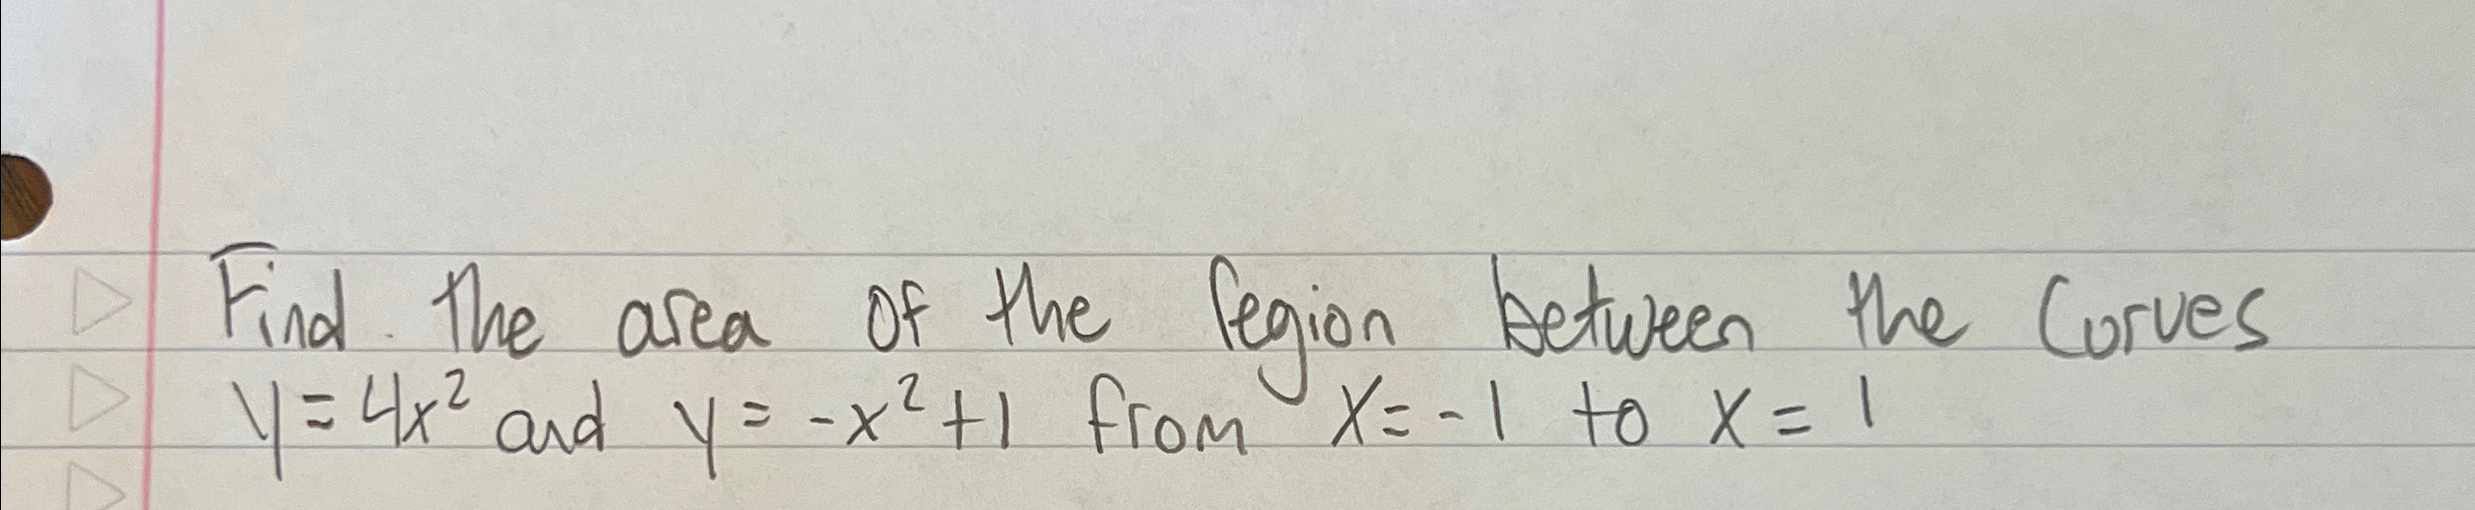 Find the area of the region between the curves
y = 4x² and y = -x² + 1 from x = -1 to x = 1